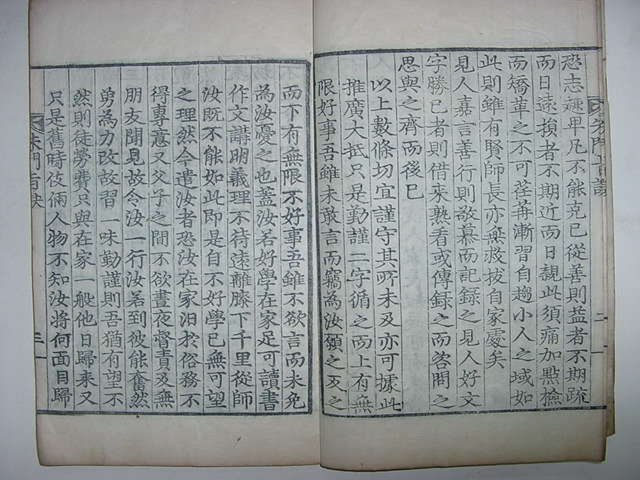 恐志趣卑凡不能克已從善則益者不期疏
而日遠損者不期近而日親此須痛加點檢
而矯革之不可荏苒漸習自趨小人之域如
此則雖有賢師長亦無救拔自家處矣
見人嘉言善行則敬慕而記錄之見人好文
字勝已者則借來熟看或傳錄之而咨問之
思與之齊而後已
以上數條切宜謹守其所未及亦可據此
推廣大抵只是勤謹二字循之而上有無
限好事吾雖未敢言而竊為汝願之反之
而下有無限不好事吾雖不欲言而未免
為汝憂之也盖汝若好學在家足可讀書
作文講明義理不待遠離膝下千里從師
汝既不能如此即是自不好學已無可望
之理然今遣汝者恐汝在家汨於俗務不
得專意又父子之間不欲晝夜督責及無
朋友聞見故令汝一行汝若到彼能奮然
勇為力改故習一味勤謹則吾猶有望不
然則徒勞費只與在家一般他日歸来又
只是舊時伎倆人物不知汝將何面目歸
朱門旨訣
三
朱門旨訣
二